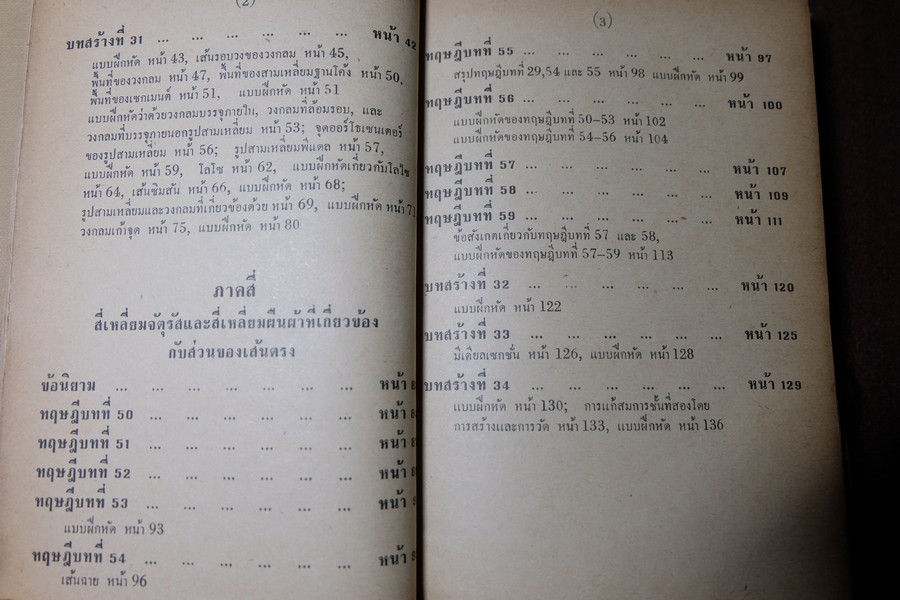 (2)
บทสร้างที่ 31 ... ... ... ... ... ... หน้า 42
แบบฝึกหัด หน้า 43, เส้นรอบวงของวงกลม หน้า 45,
พื้นที่ของวงกลม หน้า 47, พื้นที่ของสามเหลี่ยมฐานโค้ง หน้า 50,
พื้นที่ของเซกเมนต์ หน้า 51, แบบฝึกหัด หน้า 51
แบบฝึกหัดว่าด้วยวงกลมบรรจุภายใน, วงกลมที่ล้อมรอบ, และ
วงกลมที่บรรจุภายนอกรูปสามเหลี่ยม หน้า 53; จุดออร์โธเซนเตอร์
ของรูปสามเหลี่ยม หน้า 56; รูปสามเหลี่ยมพีแดล หน้า 57,
แบบฝึกหัด หน้า 59, โลโซ หน้า 62, แบบฝึกหัดเกี่ยวกับโลไซ
หน้า 64, เส้นซิมสัน หน้า 66, แบบฝึกหัด หน้า 68;
รูปสามเหลี่ยมและวงกลมที่เกี่ยวข้องด้วย หน้า 69, แบบฝึกหัด หน้า 71
วงกลมเก้าจุด หน้า 75, แบบฝึกหัด หน้า 80
ภาคสี่
สี่เหลี่ยมจัตุรัสและสี่เหลี่ยมผืนผ้าที่เกี่ยวข้อง
กับส่วนของเส้นตรง
ข้อนิยาม ... ... ... ... ... ... หน้า
ทฤษฎีบทที่ 50 ... ... ... ... ... หน้า
ทฤษฎีบทที่ 51 ... ... ... ... ... หน้า
ทฤษฎีบทที่ 52 ... ... ... ... ... หน้า
ทฤษฎีบทที่ 53 ... ... ... ... ... หน้า
แบบฝึกหัด หน้า 93
ทฤษฎีบทที่ 54 ... ... ... ... ... หน้า
เส้นฉาย หน้า 96
(3)
ทฤษฎีบทที่ 55 ... ... ... ... ... หน้า 97
สรุปทฤษฎีบทที่ 29,54 และ 55 หน้า 98 แบบฝึกหัด หน้า 99
ทฤษฎีบทที่ 56 ... ... ... ... ... หน้า 100
แบบฝึกหัดของทฤษฎีบทที่ 50–53 หน้า 102
แบบฝึกหัดของทฤษฎีบทที่ 54–56 หน้า 104
ทฤษฎีบทที่ 57 ... ... ... ... ... หน้า 107
ทฤษฎีบทที่ 58 ... ... ... ... ... หน้า 109
ทฤษฎีบทที่ 59 ... ... ... ... ... หน้า 111
ข้อสังเกตเกี่ยวกับทฤษฎีบทที่ 57 และ 58,
แบบฝึกหัดของทฤษฎีบทที่ 57–59 หน้า 113
บทสร้างที่ 32 ... ... ... ... ... หน้า 120
แบบฝึกหัด หน้า 122
บทสร้างที่ 33 ... ... ... ... ... หน้า 125
มีเดียลเซกชั่น หน้า 126, แบบฝึกหัด หน้า 128
บทสร้างที่ 34 ... ... ... ... ... หน้า 129
แบบฝึกหัด หน้า 130; การแก้สมการชั้นที่สองโดย
การสร้างและการวัด หน้า 133, แบบฝึกหัด หน้า 136